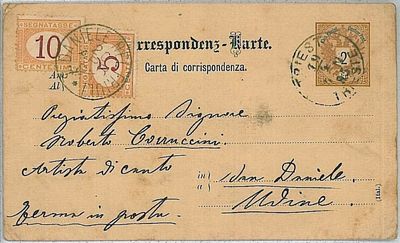 SEGNATASSE
10
CENTESIMI
5
Correspondenz-Karte.
Carta di corrispondenza.
2
TRIEST
An
Al
Pregiatissimo Signore
Roberto
Artista di canto
in
a
San Daniele
Udine
Ferma in posta
(Ital.)